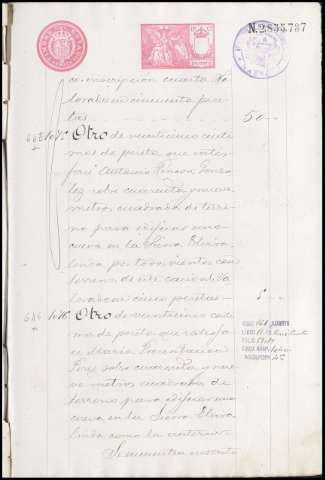 N.2833,737
co inscripcion cuarta Va
loraba en cincuenta pese
tas 50
645 1075 Otro de veinticinco centi
mos de peseta que satis
face Antonio Gonza
lez sobre cuarenta y nueve
metros cuadrados de terre
no para edificar una
cueva en la Sierra Elvira
linda por todos vientos con
terreno de este caudal Va
loraba en cinco pesetas 5
646 1076 Otro de veinticinco centi
mos de peseta que satisfa
ce Maria Presentacion
Perez sobre cuarenta y nue
ve metros cuadrados de
terreno para edificar una
cueva en la Sierra Elvira
linda como la anterior
Se encuentra inscrito